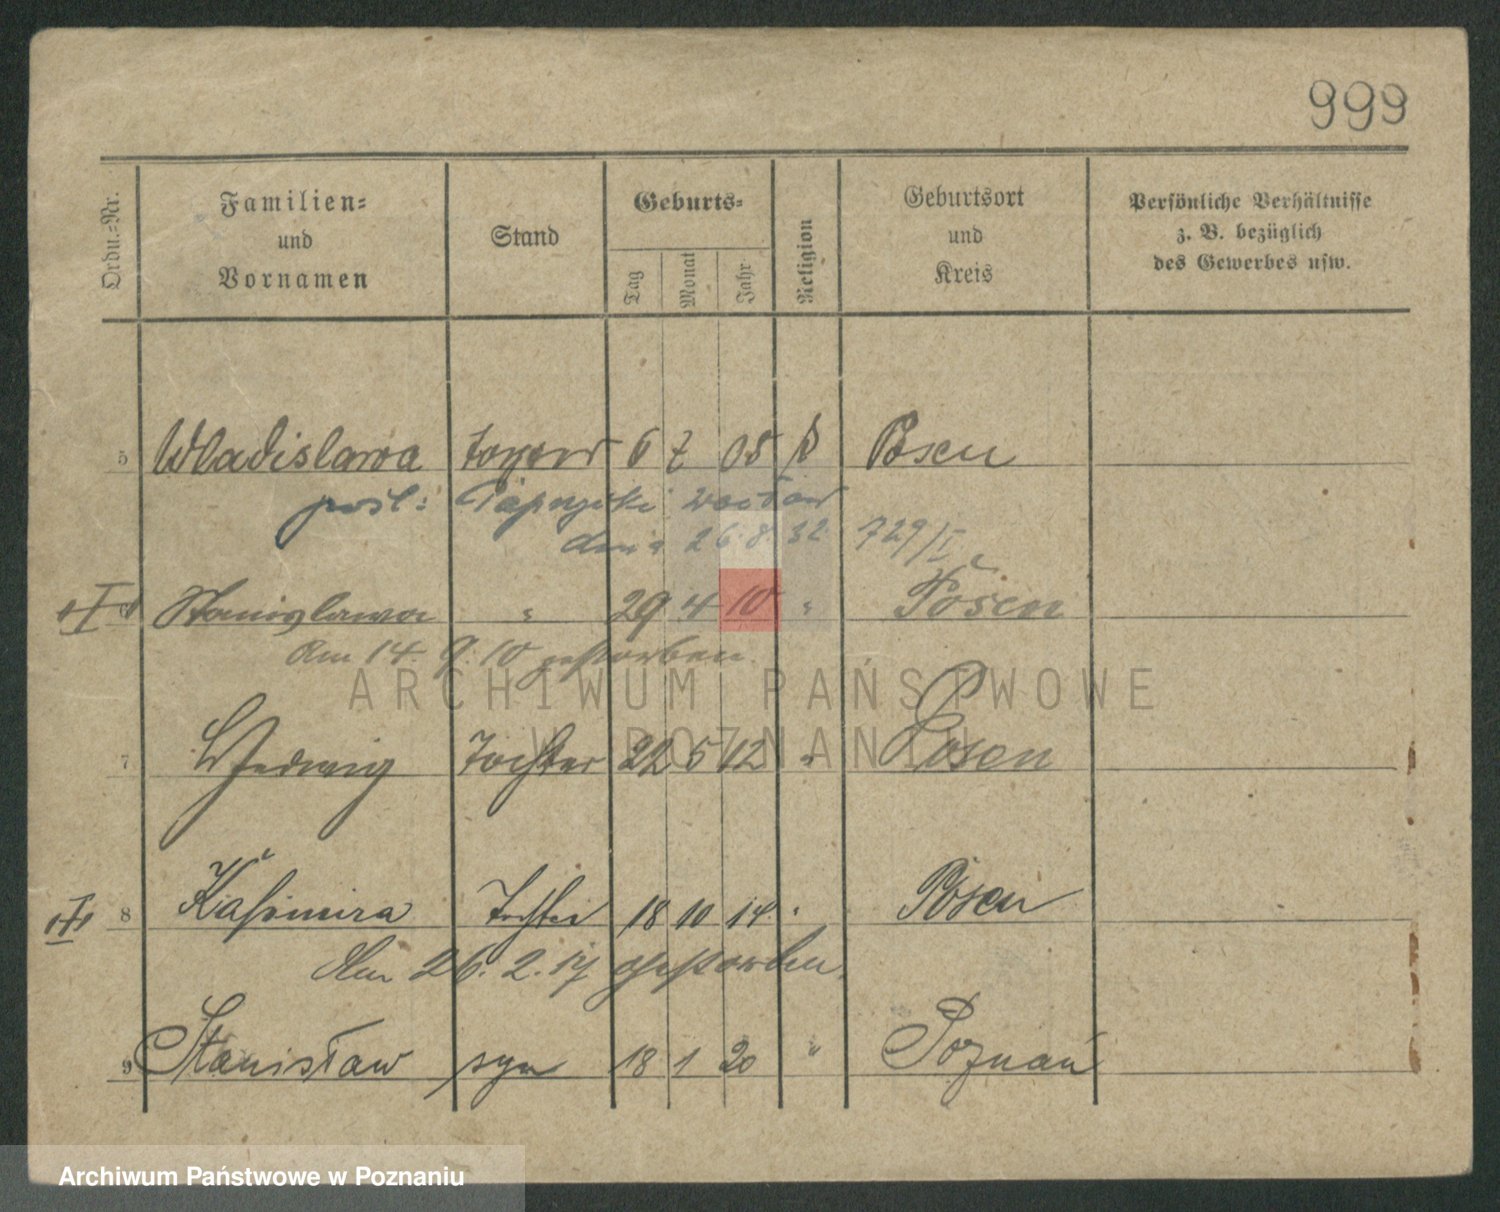 999
Ordn.=Nr. Familien= und Vornamen Stand Geburts= Tag Monat Jahr Religion Geburtsort und Kreis Persönliche Verhältnisse z. B. bezüglich des Gewerbes usw.
5 Wladislawa 6 7 08 Posen
posl:
dnia 26.8.32 729/I
6 Stanislawa " 29 4 10 " Posen
Am 14. 9. 10 gestorben.
ARCHIWUM PAŃSTWOWE
W POZNANIU
7 Hedwig Tochter 22 5 12 " Posen
8 Kasimira Tochter 18 10 14 " Posen
Am 26. 2. 17 gestorben.
9 Stanisław syn 18 1 20 " Poznań
Archiwum Państwowe w Poznaniu